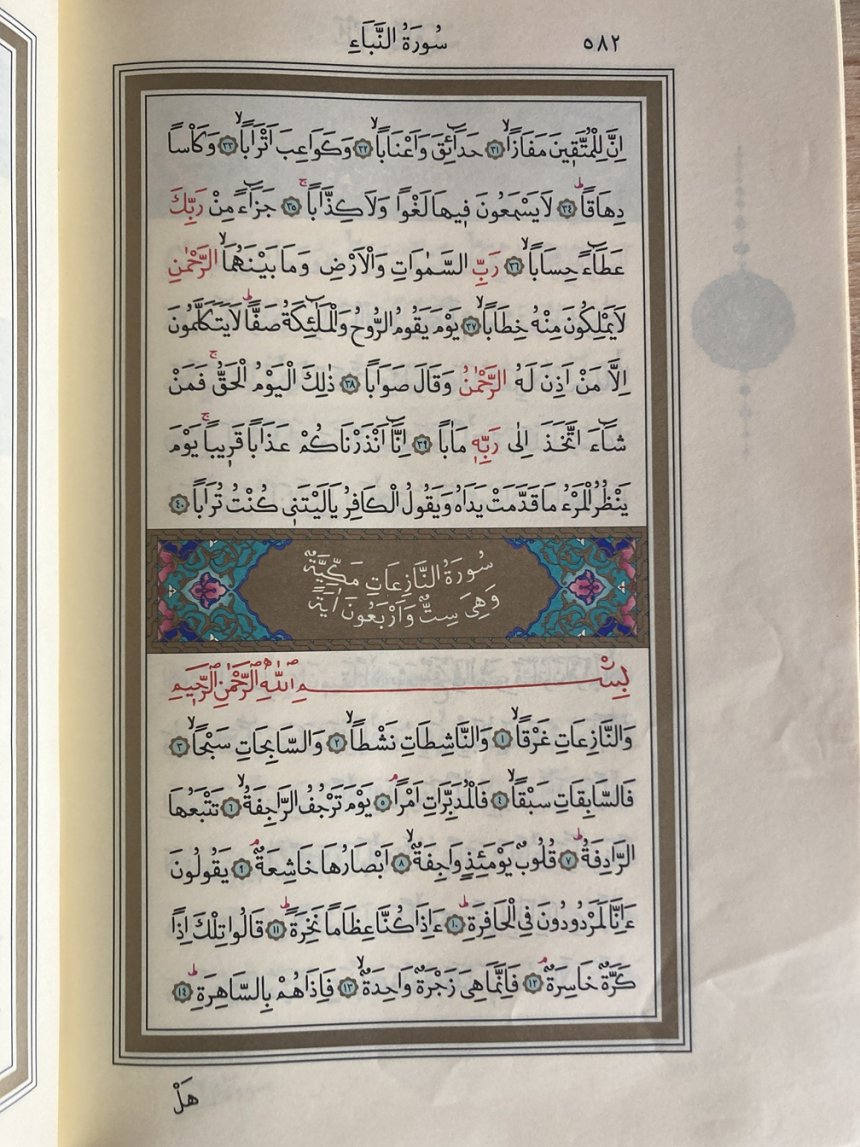 ٥٨٢ سُورَةُ النَّبَأِ
اِنَّ لِلْمُتَّقٖينَ مَفَازاًۙ ﴿٣١﴾ حَدَٓائِقَ وَاَعْنَاباًۙ ﴿٣٢﴾ وَكَوَاعِبَ اَتْرَاباًۙ ﴿٣٣﴾ وَكَأْساً
دِهَاقاًؕ ﴿٣٤﴾ لَا يَسْمَعُونَ فٖيهَا لَغْواً وَلَا كِذَّاباًۚ ﴿٣٥﴾ جَزَٓاءً مِنْ رَبِّكَ
عَطَٓاءً حِسَاباًۙ ﴿٣٦﴾ رَبِّ السَّمٰوَاتِ وَالْاَرْضِ وَمَا بَيْنَهُمَاۙ الرَّحْمٰنِ
لَا يَمْلِكُونَ مِنْهُ خِطَاباًۙ ﴿٣٧﴾ يَوْمَ يَقُومُ الرُّوحُ وَالْمَلٰٓئِكَةُ صَفاًّؕ لَا يَتَكَلَّمُونَ
اِلَّا مَنْ اَذِنَ لَهُ الرَّحْمٰنُ وَقَالَ صَوَاباً ﴿٣٨﴾ ذٰلِكَ الْيَوْمُ الْحَقُّۚ فَمَنْ
شَٓاءَ اتَّخَذَ اِلٰى رَبِّهٖ مَاٰباً ﴿٣٩﴾ اِنَّٓا اَنْذَرْنَاكُمْ عَذَاباً قَرٖيباًۚ يَوْمَ
يَنْظُرُ الْمَرْءُ مَا قَدَّمَتْ يَدَاهُ وَيَقُولُ الْكَافِرُ يَا لَيْتَنٖى كُنْتُ تُرَاباً ﴿٤٠﴾
سُورَةُ النَّازِعَاتِ مَكِّيَّةٌ
وَهِىَ سِتٌّ وَاَرْبَعُونَ اٰيَةً
بِسْمِ اللّٰهِ الرَّحْمٰنِ الرَّحٖيمِ
وَالنَّازِعَاتِ غَرْقاًۙ ﴿١﴾ وَالنَّاشِطَاتِ نَشْطاًۙ ﴿٢﴾ وَالسَّابِحَاتِ سَبْحاًۙ ﴿٣﴾
فَالسَّابِقَاتِ سَبْقاًۙ ﴿٤﴾ فَالْمُدَبِّرَاتِ اَمْراًۘ ﴿٥﴾ يَوْمَ تَرْجُفُ الرَّاجِفَةُۙ ﴿٦﴾ تَتْبَعُهَا
الرَّادِفَةُؕ ﴿٧﴾ قُلُوبٌ يَوْمَئِذٍ وَاجِفَةٌۙ ﴿٨﴾ اَبْصَارُهَا خَاشِعَةٌۘ ﴿٩﴾ يَقُولُونَ
ءَاِنَّا لَمَرْدُودُونَ فِى الْحَافِرَةِؕ ﴿١٠﴾ ءَاِذَا كُنَّا عِظَاماً نَخِرَةًؕ ﴿١١﴾ قَالُوا تِلْكَ اِذاً
كَرَّةٌ خَاسِرَةٌۘ ﴿١٢﴾ فَاِنَّمَا هِىَ زَجْرَةٌ وَاحِدَةٌۙ ﴿١٣﴾ فَاِذَا هُمْ بِالسَّاهِرَةِؕ ﴿١٤﴾
هَلْ